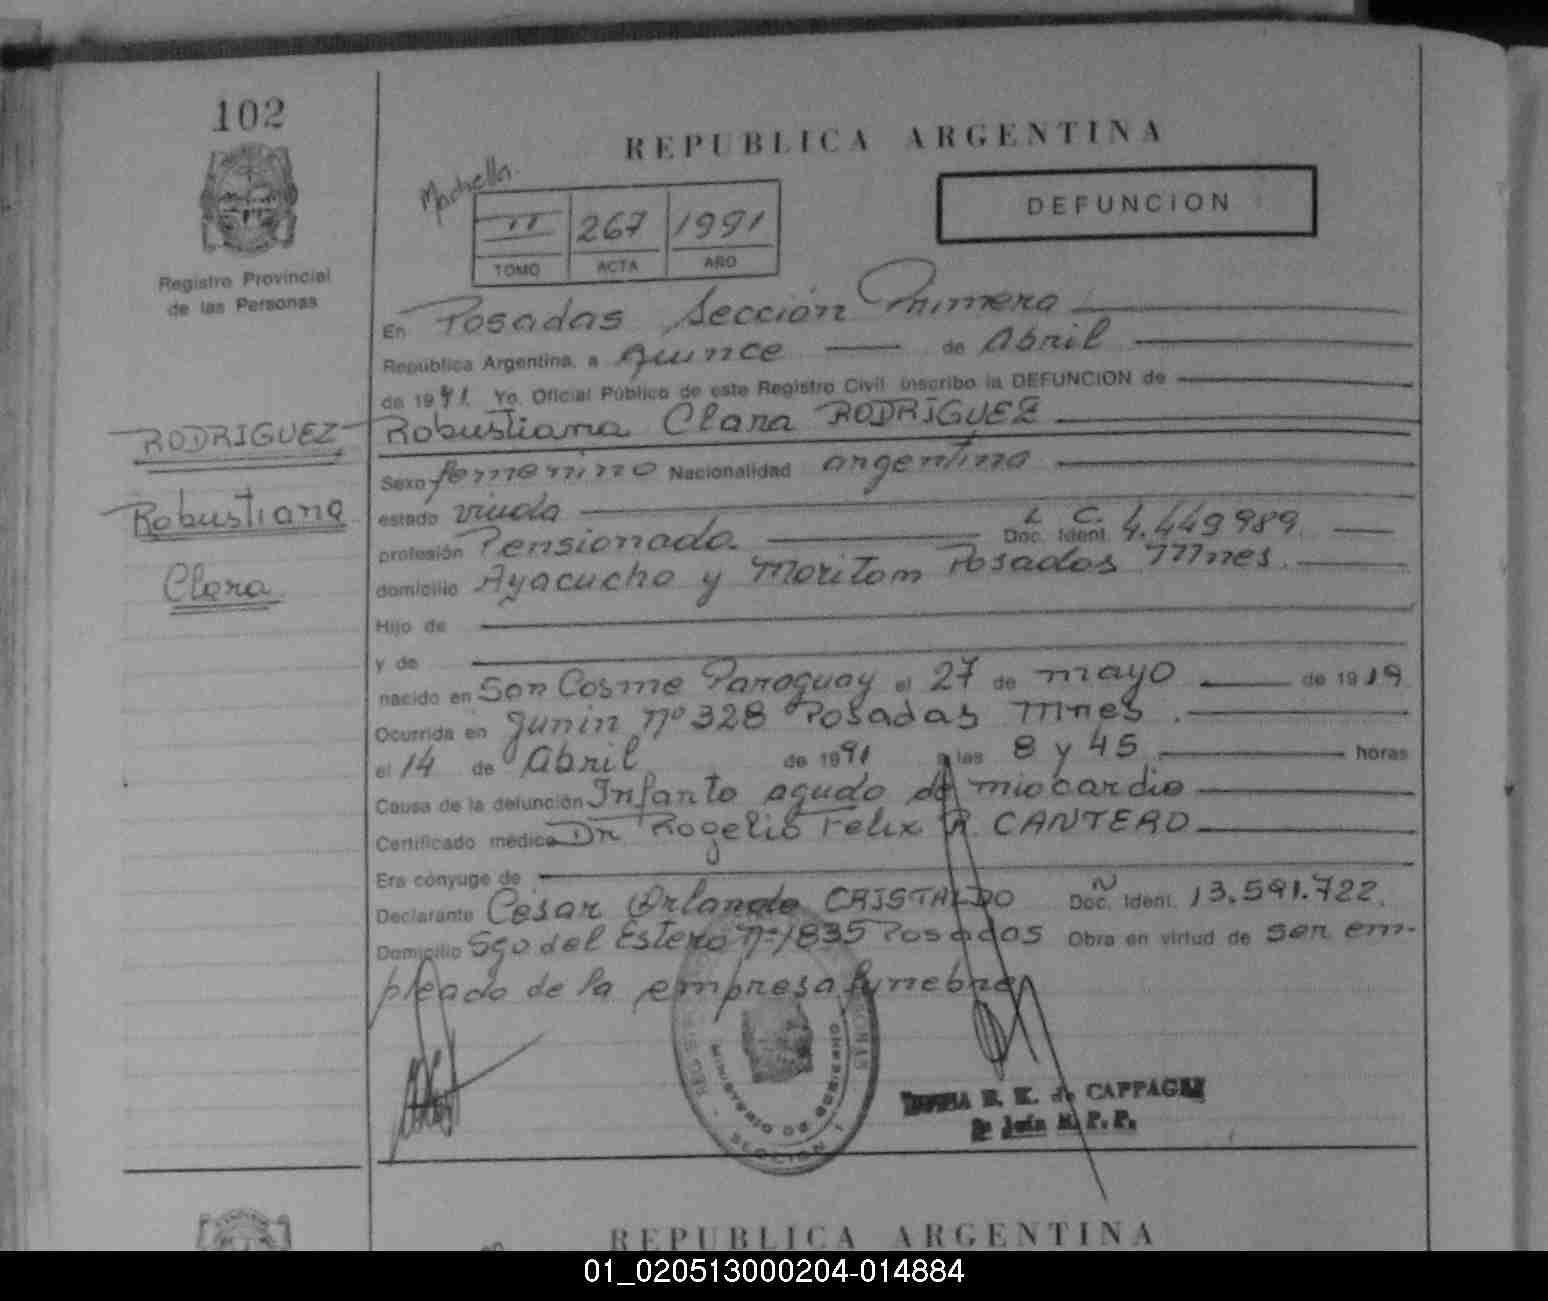 102
REPUBLICA ARGENTINA
DEFUNCION
II 267 1991
TOMO ACTA AÑO
Registro Provincial
de las Personas
En Posadas Sección Primera
República Argentina, a quince de Abril
de 1991. Yo, Oficial Público de este Registro Civil inscribo la DEFUNCION de
RODRIGUEZ
Robustiana
Clara
Robustiana Clara RODRIGUEZ
Sexo femenino Nacionalidad argentina
estado viuda
profesión Pensionada Doc. Ident. L. C. 4.449989
domicilio Ayacucho y Moritan Posadas Mnes.
Hijo de
y de
nacido en San Cosme Paraguay el 27 de mayo de 1919
Ocurrida en Junin Nº 328 Posadas Mnes.
el 14 de Abril de 1991 a las 8 y 45 horas
Causa de la defunción Infarto agudo de miocardio
Certificado médico Dr. Rogelio Felix R. CANTERO
Era cónyuge de
Declarante César Orlando CRISTALDO Doc. Ident. N 13.591.722.
Domicilio Sgo del Estero Nº 1835 Posadas Obra en virtud de ser em-
pleado de la empresa funebre
SECCION 1
CAPPAGLI
REPUBLICA ARGENTINA
01_020513000204-014884